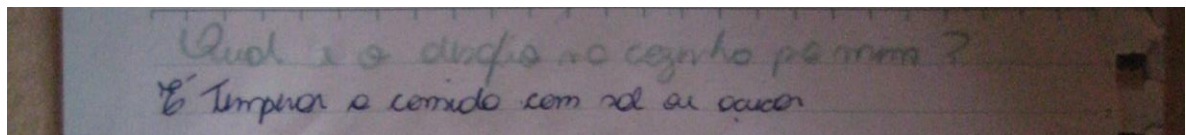 Qual é o desafio na cozinha pra mim?
É Temperar a comida com sal ou açucar